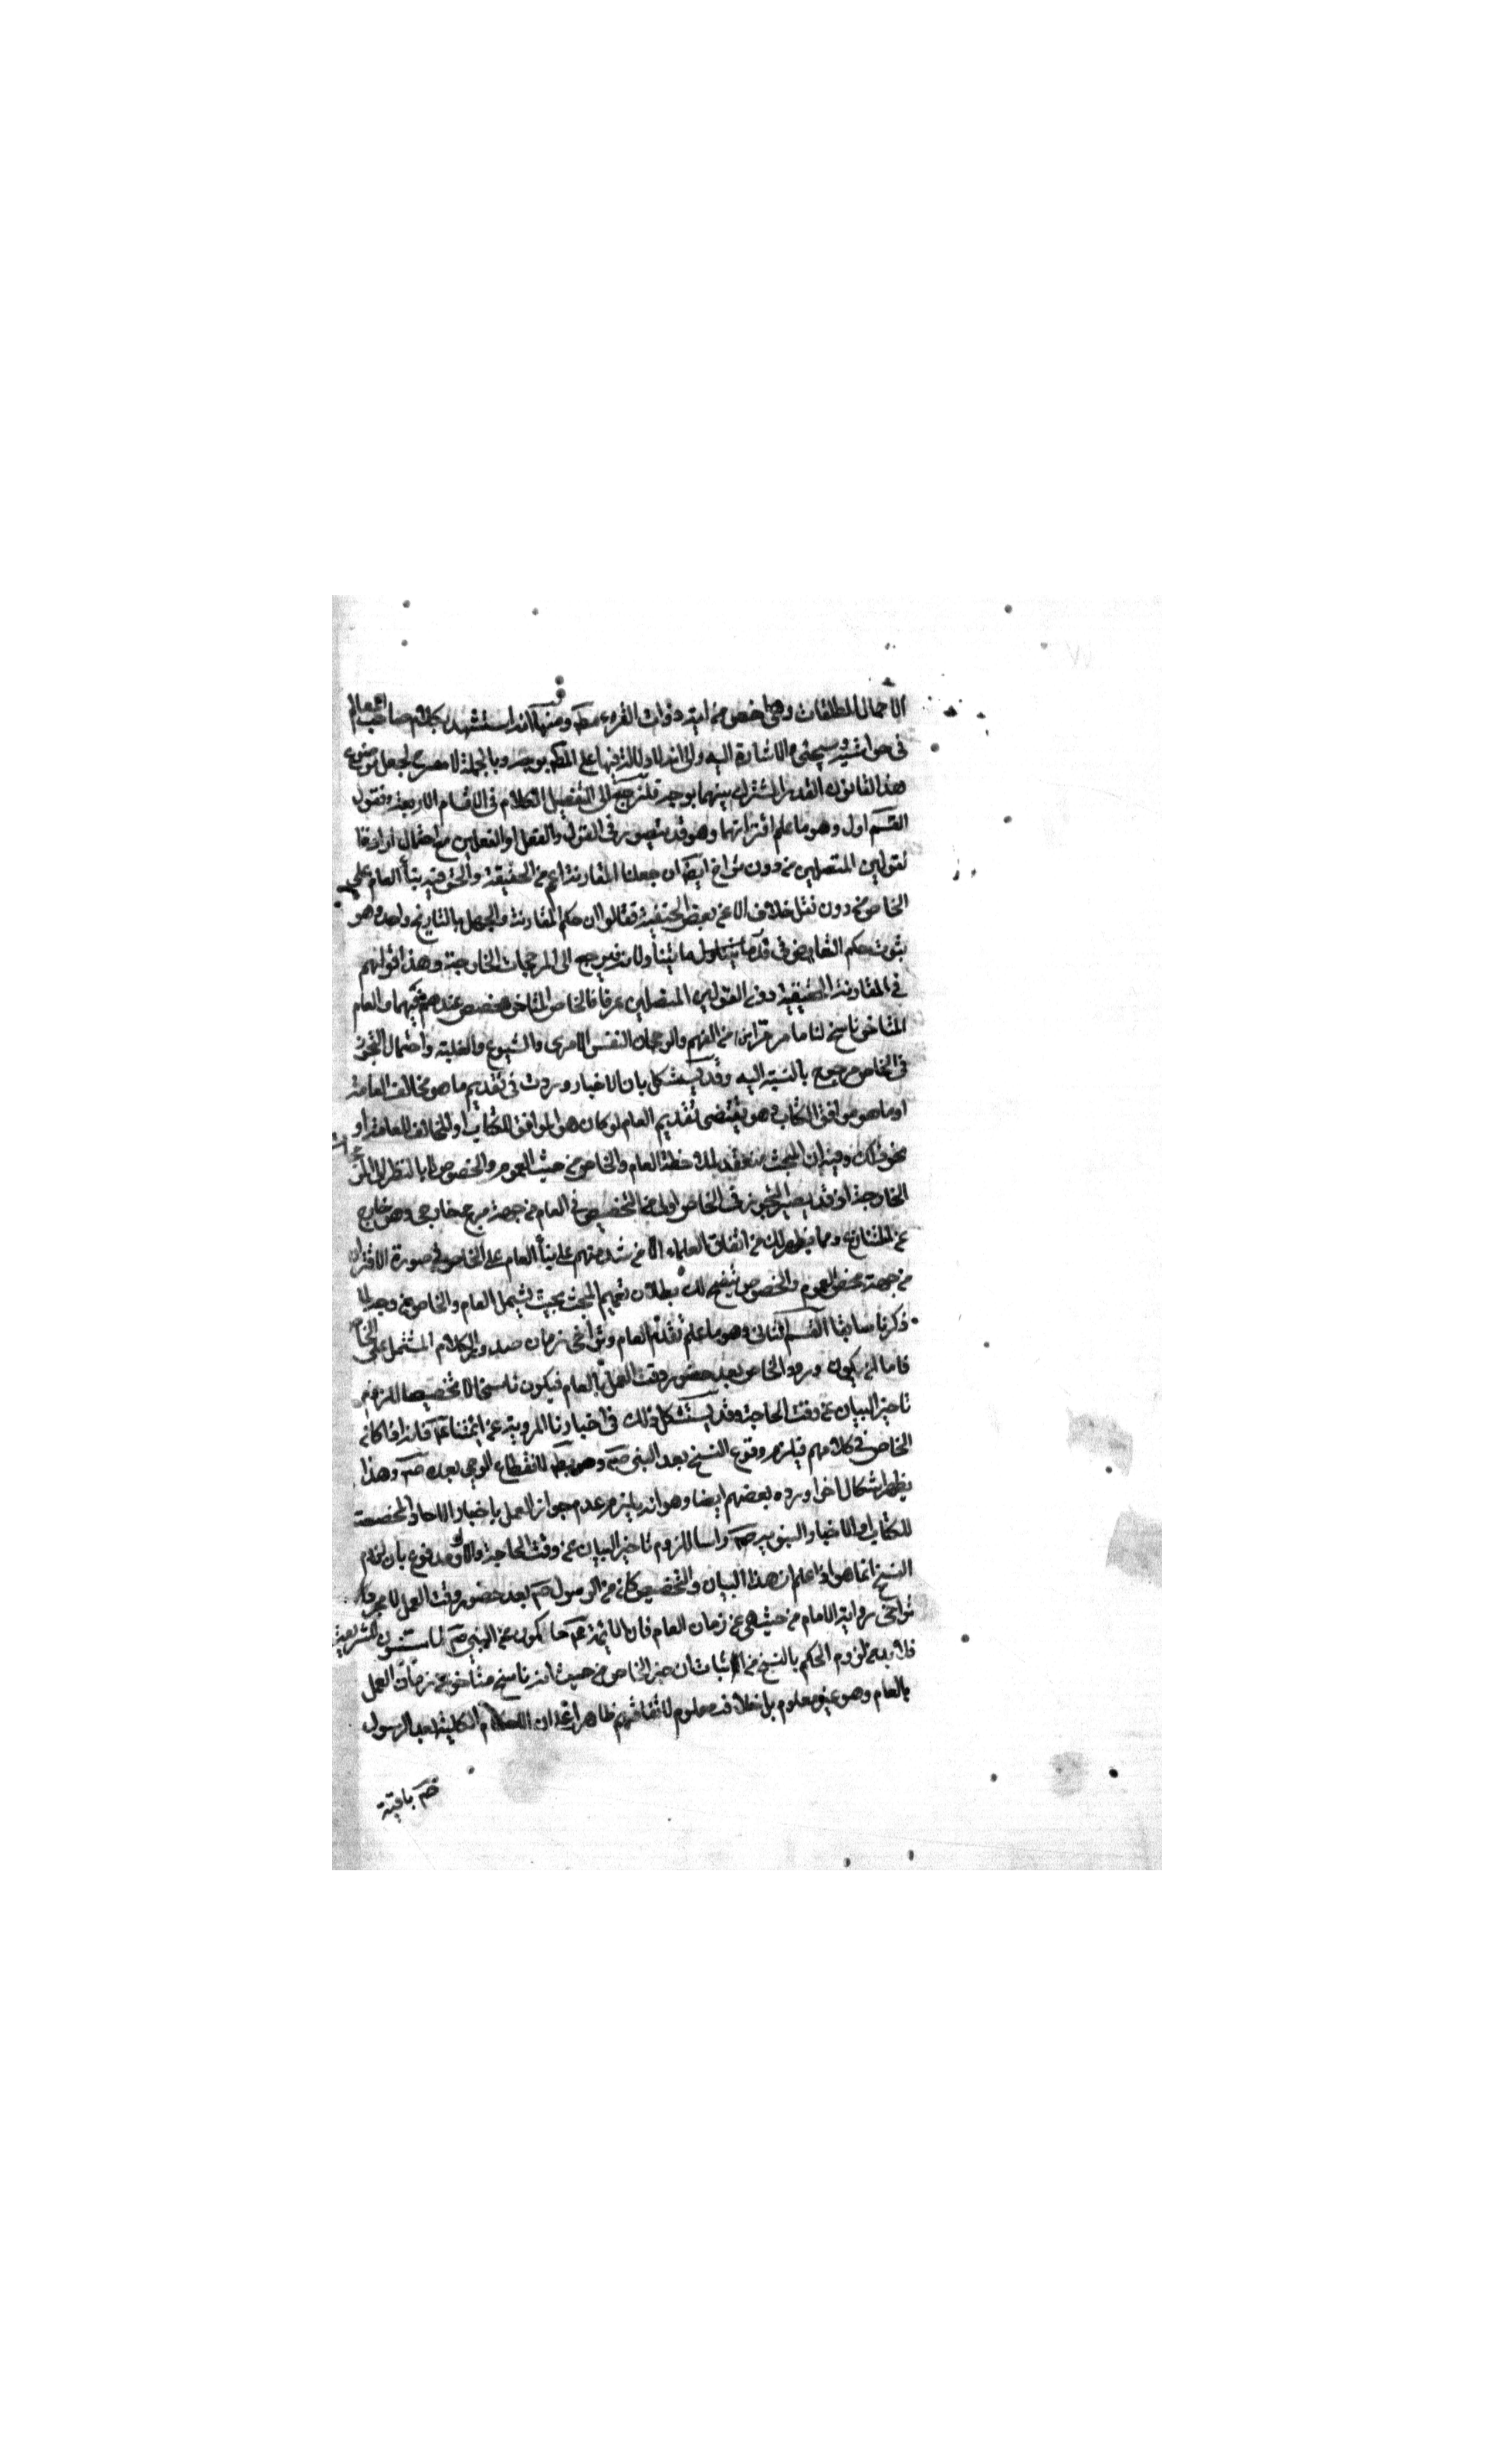 الاحمال المطلقات وهى اخص من اية ذوات القروء مطلقا ومنها انه استشهد بكلام صاحب المعالم
فى حواشيه وسيجئ الاشارة اليه والى انه لا دلالة فيها على المط بوجه وبالجملة لا مصرح لجعل موضوع
هذا القانون القدر المشترك بينهما بوجه فلنرجع الى التفصيل الكلام فى الاقسام الاربعة ونقول
القسم اول وهو ما علم اقترانهما وهو قد يتصور فى القول والفعل او الفعلين مع احتمال ارادة
القولين المتصلين من دون تراخ ايضا ان جعلنا المقارنة اعم من الحقيقية والحق فيه بناء العام على
الخاص من دون نقل خلاف الا عن بعض الحنفية فقالوا ان حكم المقارنة والجهل بالتاريخ واحد وهو
ثبوت حكم التعارض فى قدر ما يتناولانه فيرجع الى المرجحات الخارجة وهذا قولهم
فى المقارنة الحقيقية دون القولين المتصلين عرفا فالخاص المتاخر مخصص عندهم فيهما والعام
المتاخر ناسخ لنا ما مر مرارا من الفهم والرجحان النفس الامرى والشيوع والغلبة واحتمال التجوز
فى الخاص مرجوح بالنسبة اليه وقد يستشكل بان الاخبار وردت فى تقديم ما هو مخالف العامة
او ما هو موافق الكتاب وهو يقتضى تقديم العام لو كان هو الموافق للكتاب او المخالف للعامة او
نحو ذلك وفيه ان المبحث منعقد لملاحظة العام والخاص من حيث العموم والخصوص لا بالنظر الى المرجحات
الخارجة اذ قد يصير التجوز فى الخاص اولى من التخصيص فى العام من جهة مرجح خارجى وهو خارج
عن المتنازع ومما يظهر لك من اتفاق العلماء الا من شذ منهم على بناء العام على الخاص فى صورة الاقتران
من جهة محض العموم والخصوص يتضح لك بطلان تعميم المبحث بحيث يشمل العام والخاص من وجه لما
ذكرنا سابقا القسم الثانى وهو ما علم تقدم العام وتراخى زمان صدور الكلام المشتمل على الخاص
فاما ان يكون ورود الخاص بعد حضور وقت العمل بالعام فيكون ناسخا لا تخصيصا للزوم
تاخير البيان عن وقت الحاجة وقد يستشكل ذلك فى اخبارنا المروية عن ائمتنا عم فانه اذا كان
الخاص فى كلامهم فيلزم وقوع النسخ بعد النبى ص وهو بط لانقطاع الوحى بعده ص وهذا
يظهر اشكال اخر اورده بعضهم ايضا وهو انه يلزم عدم جواز العمل باخبار الاحاد المخصصة
للكتاب او الاخبار النبوية ص راسا للزوم تاخير البيان عن وقت الحاجة والاول مدفوع بان لزوم
النسخ انما هو اذا علم ان هذا البيان والتخصيص كان من الرسول ص بعد حضور وقت العمل لا مجرد
تراخى رواية الامام من حيث هى عن زمان العام فان الائمة عم حاكون عن النبى ص لا مستنون للشريعة
فلا بد فى لزوم الحكم بالنسخ من اثبات ان خبر الخاص من حيث انه ناسخ متاخر عن زمان العمل
بالعام وهو غير معلوم بل خلافه معلوم لاتفاقهم ظاهرا على ان الاحكام الكلية بعد الرسول
ص باقية